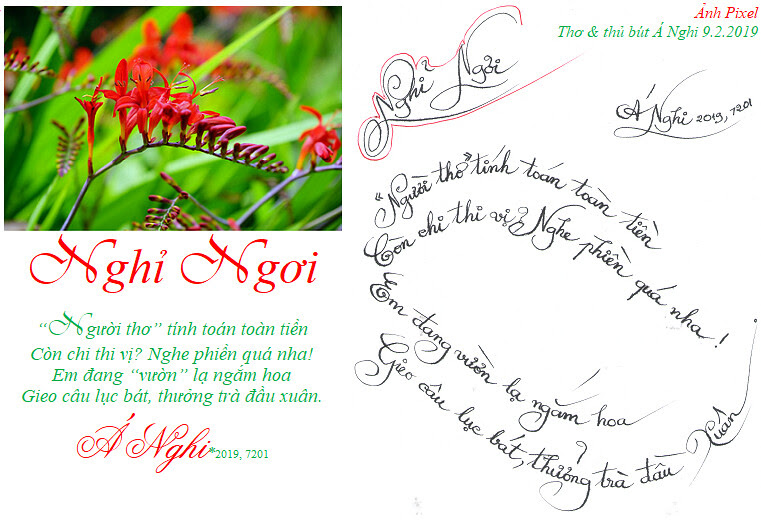 Nghỉ Ngơi
“Người thơ” tính toán toàn tiền
Còn chi thi vị? Nghe phiền quá nha!
Em đang “vườn” lạ ngắm hoa
Gieo câu lục bát, thưởng trà đầu xuân.
Á Nghi*2019, 7201
Ảnh Pixel
Thơ & thủ bút Á Nghi 9.2.2019
Nghỉ Ngơi
Á Nghi 2019, 7201
“Người thơ” tính toán toàn tiền
Còn chi thi vị? Nghe phiền quá nha!
Em đang vườn lạ ngắm hoa
Gieo câu lục bát, thưởng trà đầu Xuân